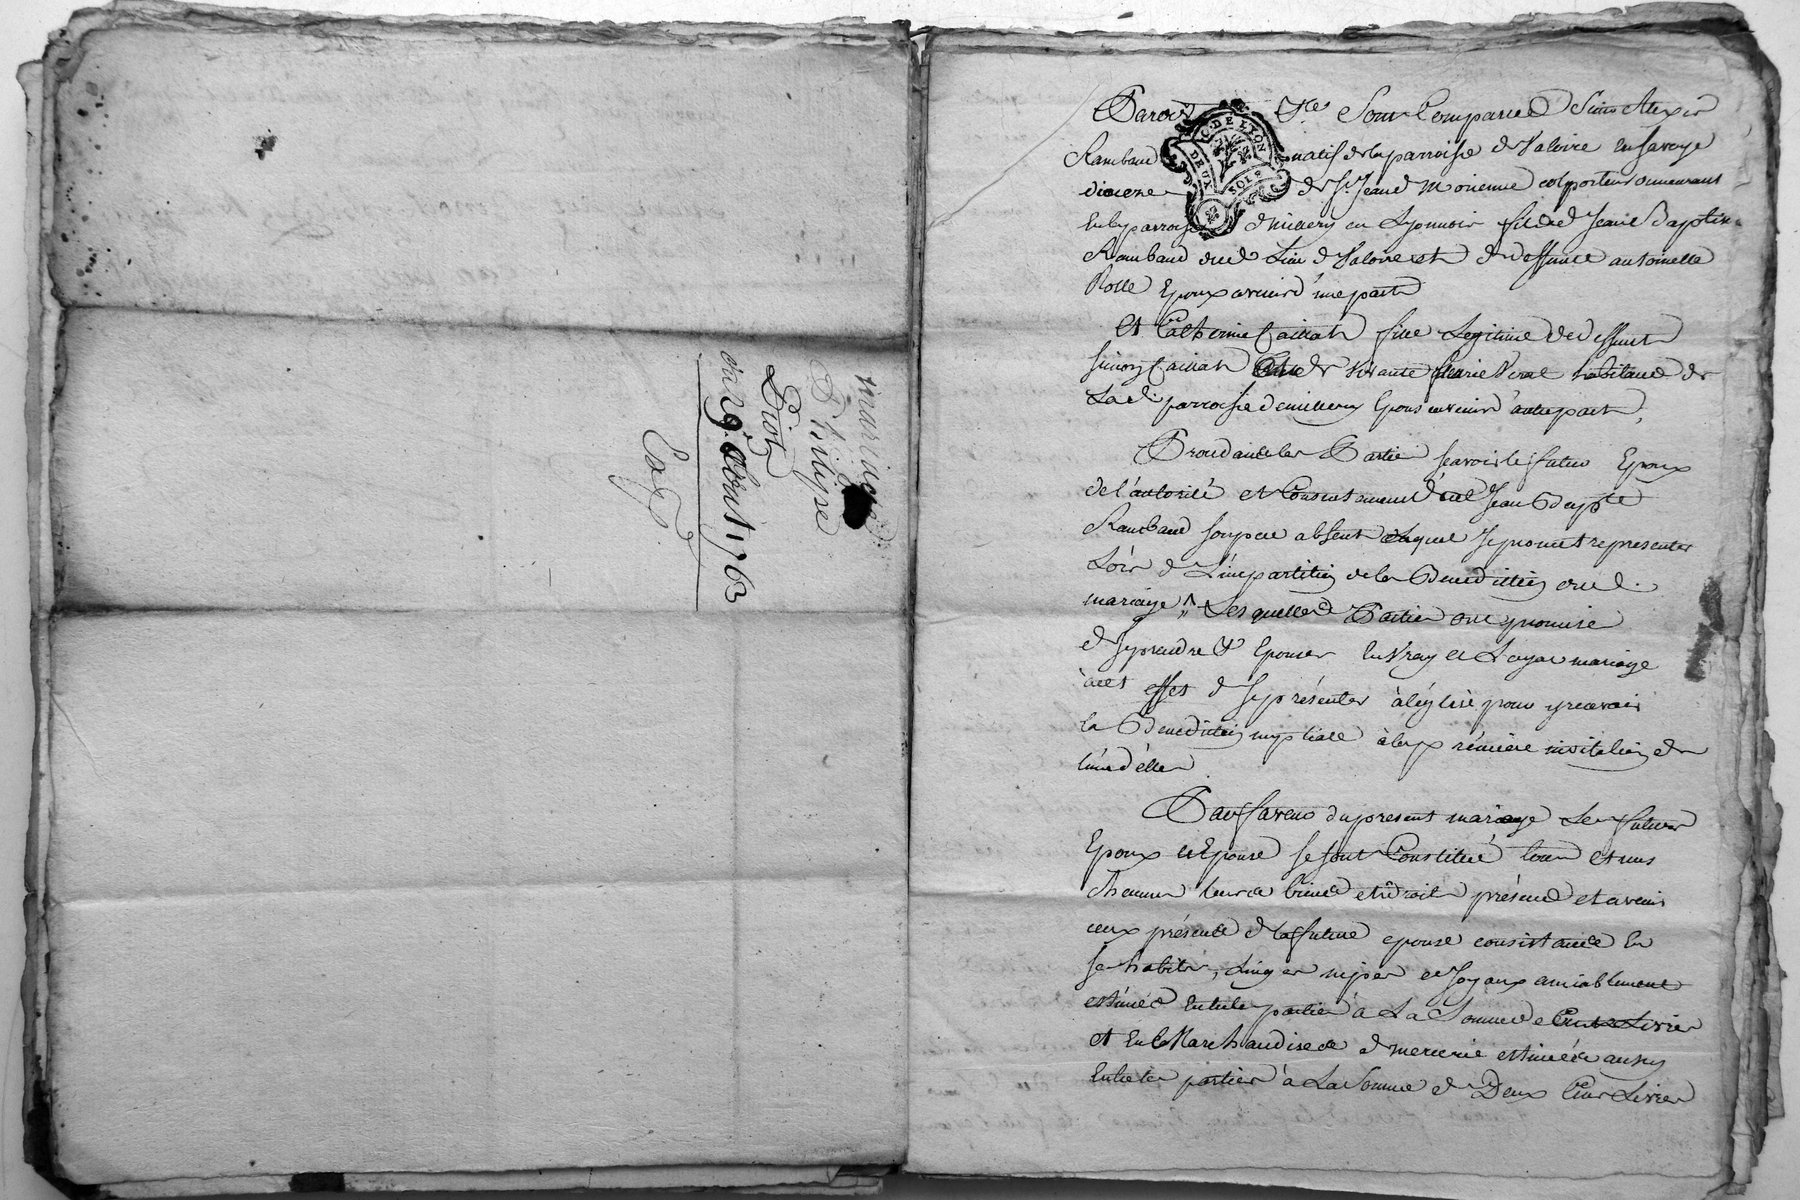 mariage
Philipe
Piot
du 29 aoust 1763
Pardev[...] Ne Sont Comparus Sieur Alexis
Rambaud natif de la parroisse de Valoire en Savoye
dioceze de St Jean d Morienne colporteur demeurant
en la parroisse d millery en Lyonnois fils de Jean Baptiste
Rambaud dud Lieu d Valoire et de deffunte antoinette
Rolle Epoux avenir d'une part
Et Catherine Caillat fille Legitime de deffunt
Simon Caillat et de vivante Marie Viral habitans de
Lad. parroisse de millery Epouse avenir d'autre part,
Procedant les Parties scavoir le futur Epoux
de l'autorité et Consentement dud Jean Bapte
Rambaud son pere absent duquel il promet representer
Lors d L'impartition de la Benediction dud.
mariage Lesquelles Parties ont promis
d se prendre & Epouser en vray et Loyal mariage
à cet effet d se présenter à l'église pour y recevoir
la Benediction nuptiale à la première invitation de
l'un d'elles
En faveur du present mariage Les futurs
Epoux et Epouse se sont Constitué tous et uns
chacuns leurs biens et droits présens et avenir
ceux présents d la future epouse consistants en
ses habits, linges nipes et Joyaux amiablement
estimés entre les parties à La Somme de Cent Livres
et en Marchandises d mercerie estimées aussy
entre les parties à La Somme d Deux Cent Livres
G. DE LYON
DEUX SOLS